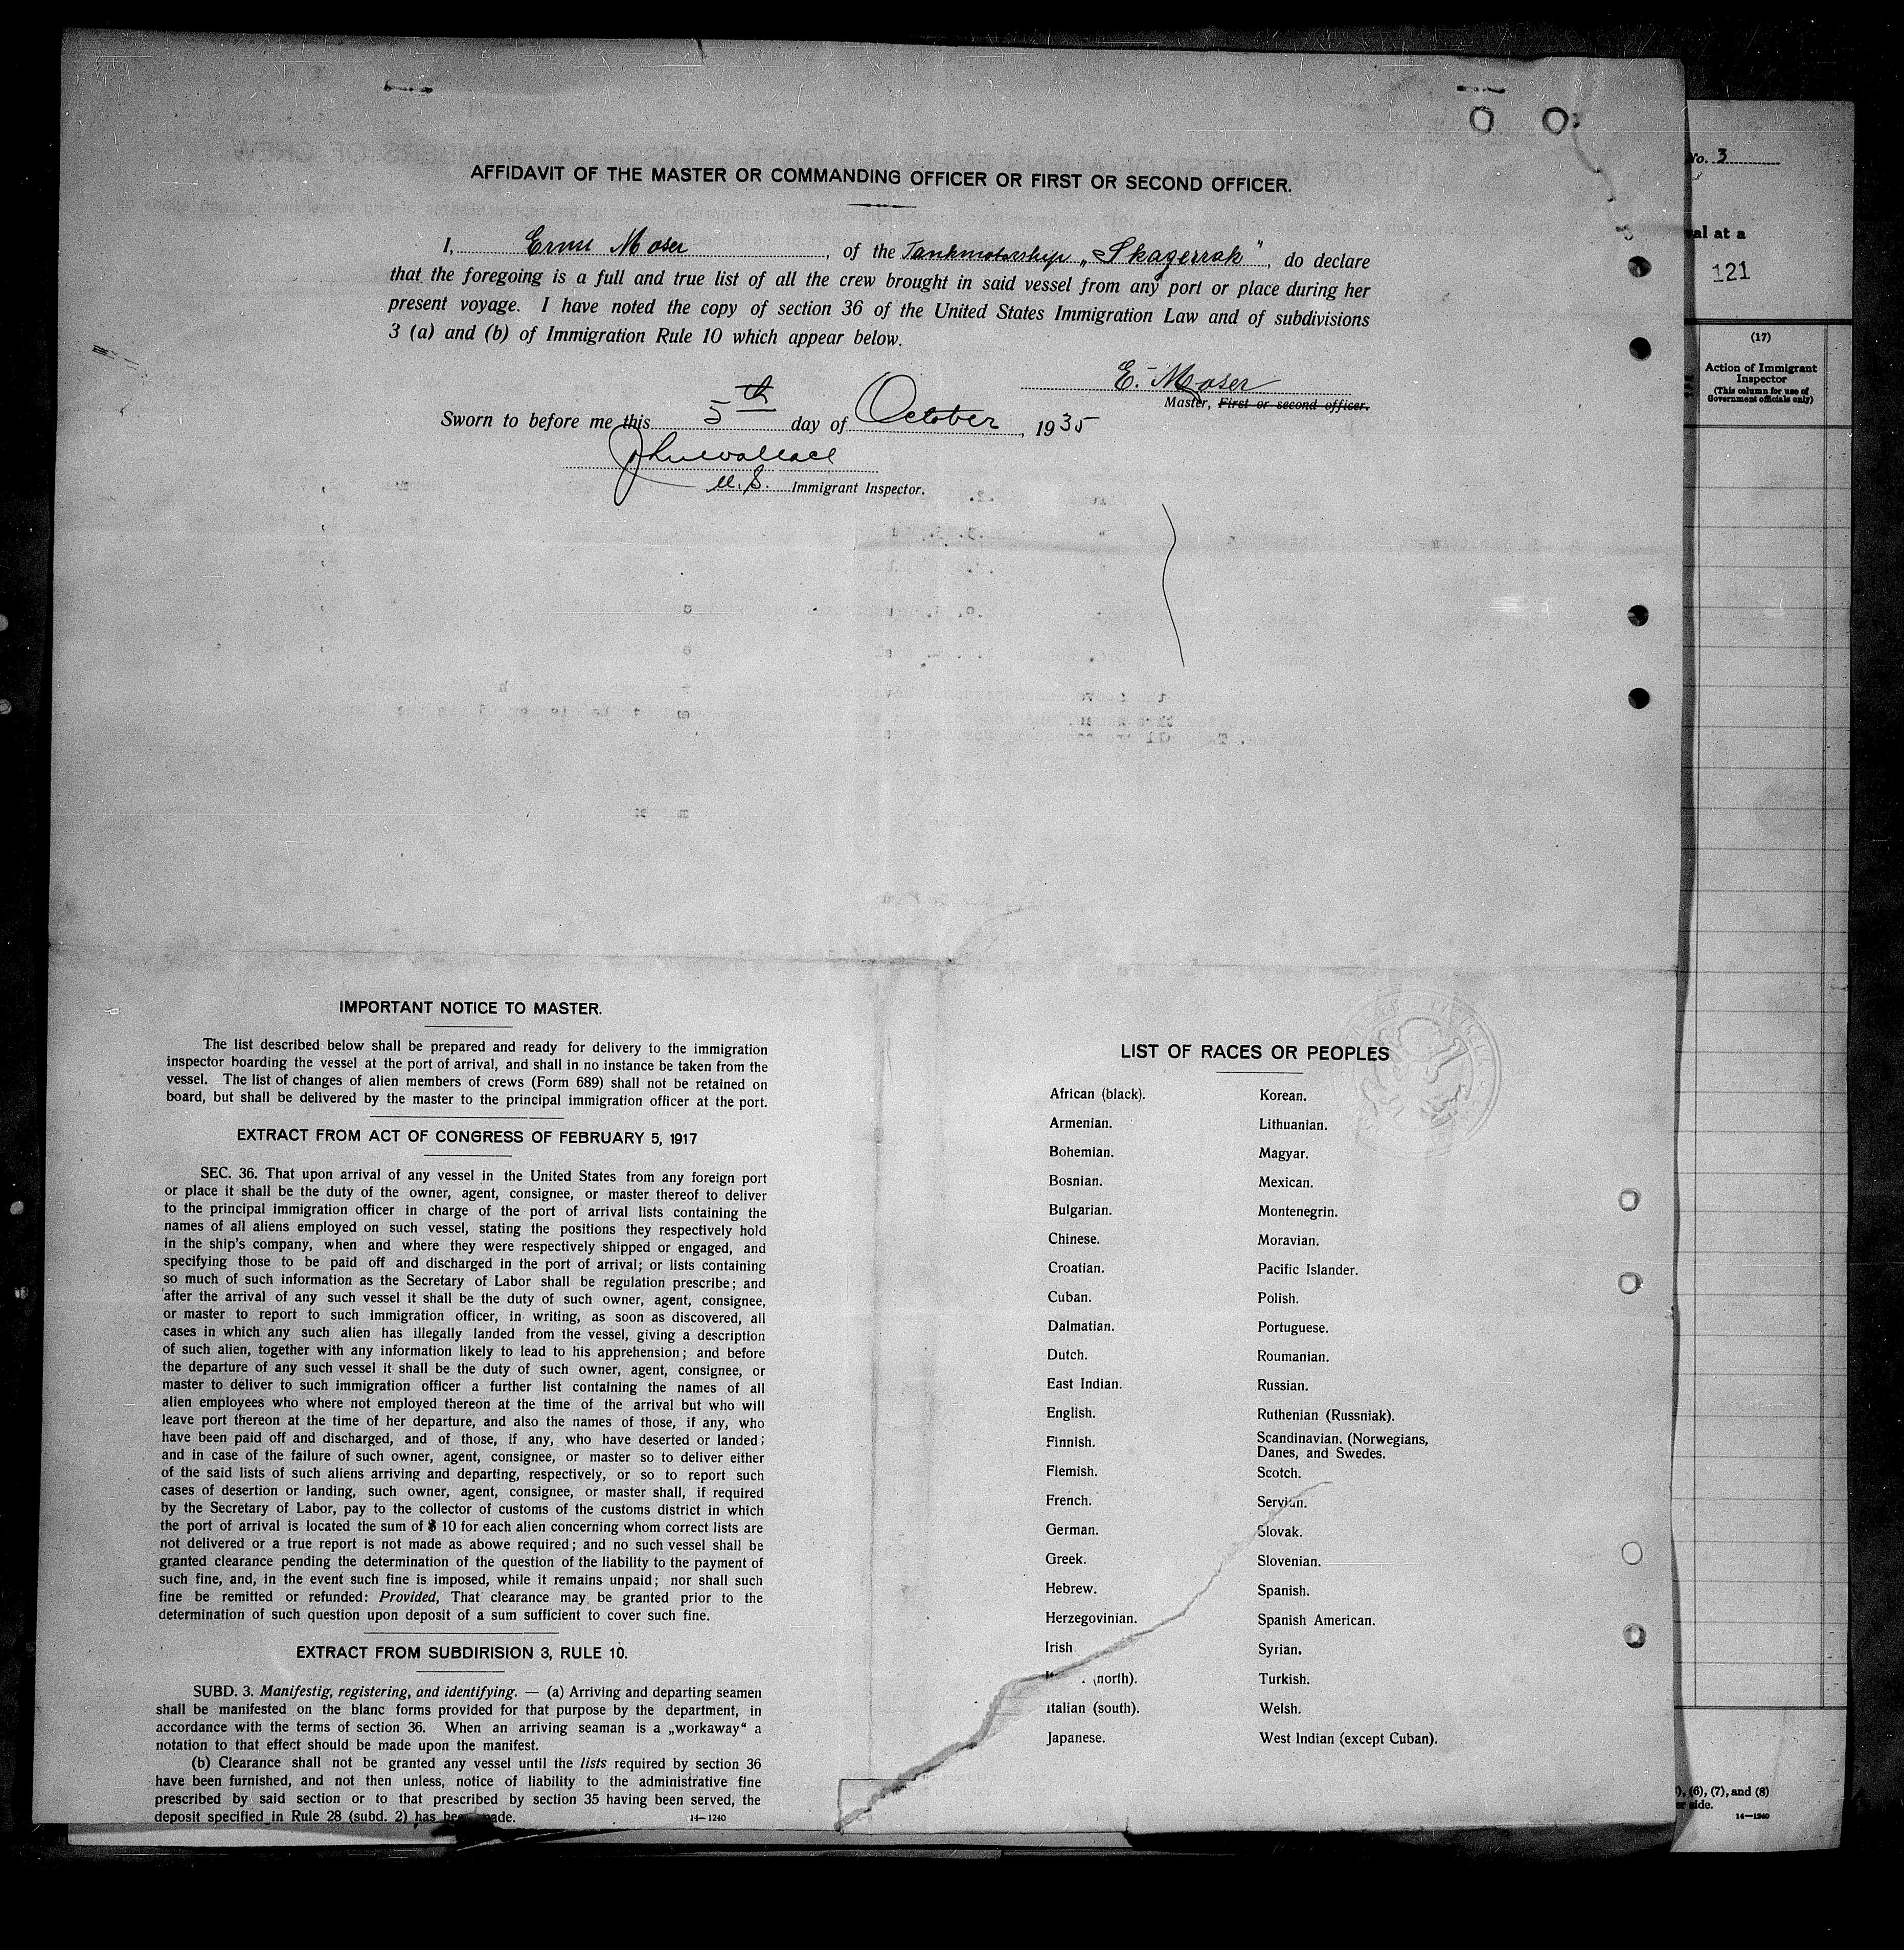 AFFIDAVIT OF THE MASTER OR COMMANDING OFFICER OR FIRST OR SECOND OFFICER.
I, Ernst Moser, of the Tankmotorship „Skagerrak", do declare
that the foregoing is a full and true list of all the crew brought in said vessel from any port or place during her
present voyage. I have noted the copy of section 36 of the United States Immigration Law and of subdivisions
3 (a) and (b) of Immigration Rule 10 which appear below.
E. Moser
Master, First or second officer.
Sworn to before me this 5th day of October, 1935
Jno Wallace
U.S. Immigrant Inspector.
IMPORTANT NOTICE TO MASTER.
The list described below shall be prepared and ready for delivery to the immigration
inspector boarding the vessel at the port of arrival, and shall in no instance be taken from the
vessel. The list of changes of alien members of crews (Form 689) shall not be retained on
board, but shall be delivered by the master to the principal immigration officer at the port.
EXTRACT FROM ACT OF CONGRESS OF FEBRUARY 5, 1917
SEC. 36. That upon arrival of any vessel in the United States from any foreign port
or place it shall be the duty of the owner, agent, consignee, or master thereof to deliver
to the principal immigration officer in charge of the port of arrival lists containing the
names of all aliens employed on such vessel, stating the positions they respectively hold
in the ship's company, when and where they were respectively shipped or engaged, and
specifying those to be paid off and discharged in the port of arrival; or lists containing
so much of such information as the Secretary of Labor shall be regulation prescribe; and
after the arrival of any such vessel it shall be the duty of such owner, agent, consignee,
or master to report to such immigration officer, in writing, as soon as discovered, all
cases in which any such alien has illegally landed from the vessel, giving a description
of such alien, together with any information likely to lead to his apprehension; and before
the departure of any such vessel it shall be the duty of such owner, agent, consignee, or
master to deliver to such immigration officer a further list containing the names of all
alien employees who where not employed thereon at the time of the arrival but who will
leave port thereon at the time of her departure, and also the names of those, if any, who
have been paid off and discharged, and of those, if any, who have deserted or landed;
and in case of the failure of such owner, agent, consignee, or master so to deliver either
of the said lists of such aliens arriving and departing, respectively, or so to report such
cases of desertion or landing, such owner, agent, consignee, or master shall, if required
by the Secretary of Labor, pay to the collector of customs of the customs district in which
the port of arrival is located the sum of $ 10 for each alien concerning whom correct lists are
not delivered or a true report is not made as abowe required; and no such vessel shall be
granted clearance pending the determination of the question of the liability to the payment of
such fine, and, in the event such fine is imposed, while it remains unpaid; nor shall such
fine be remitted or refunded: Provided, That clearance may be granted prior to the
determination of such question upon deposit of a sum sufficient to cover such fine.
EXTRACT FROM SUBDIRISION 3, RULE 10.
SUBD. 3. Manifestig, registering, and identifying. — (a) Arriving and departing seamen
shall be manifested on the blanc forms provided for that purpose by the department, in
accordance with the terms of section 36. When an arriving seaman is a „workaway“ a
notation to that effect should be made upon the manifest.
(b) Clearance shall not be granted any vessel until the lists required by section 36
have been furnished, and not then unless, notice of liability to the administrative fine
prescribed by said section or to that prescribed by section 35 having been served, the
deposit specified in Rule 28 (subd. 2) has been made.
14—1240
LIST OF RACES OR PEOPLES
African (black).
Armenian.
Bohemian.
Bosnian.
Bulgarian.
Chinese.
Croatian.
Cuban.
Dalmatian.
Dutch.
East Indian.
English.
Finnish.
Flemish.
French.
German.
Greek.
Hebrew.
Herzegovinian.
Irish
(north).
Italian (south).
Japanese.
Korean.
Lithuanian.
Magyar.
Mexican.
Montenegrin.
Moravian.
Pacific Islander.
Polish.
Portuguese.
Roumanian.
Russian.
Ruthenian (Russniak).
Scandinavian. (Norwegians,
Danes, and Swedes.
Scotch.
Servian.
Slovak.
Slovenian.
Spanish.
Spanish American.
Syrian.
Turkish.
Welsh.
West Indian (except Cuban).
No. 3
al at a
121
(17)
Action of Immigrant
Inspector
(This column for use of
Government officials only)
, (6), (7), and (8)
er side.
14—1240